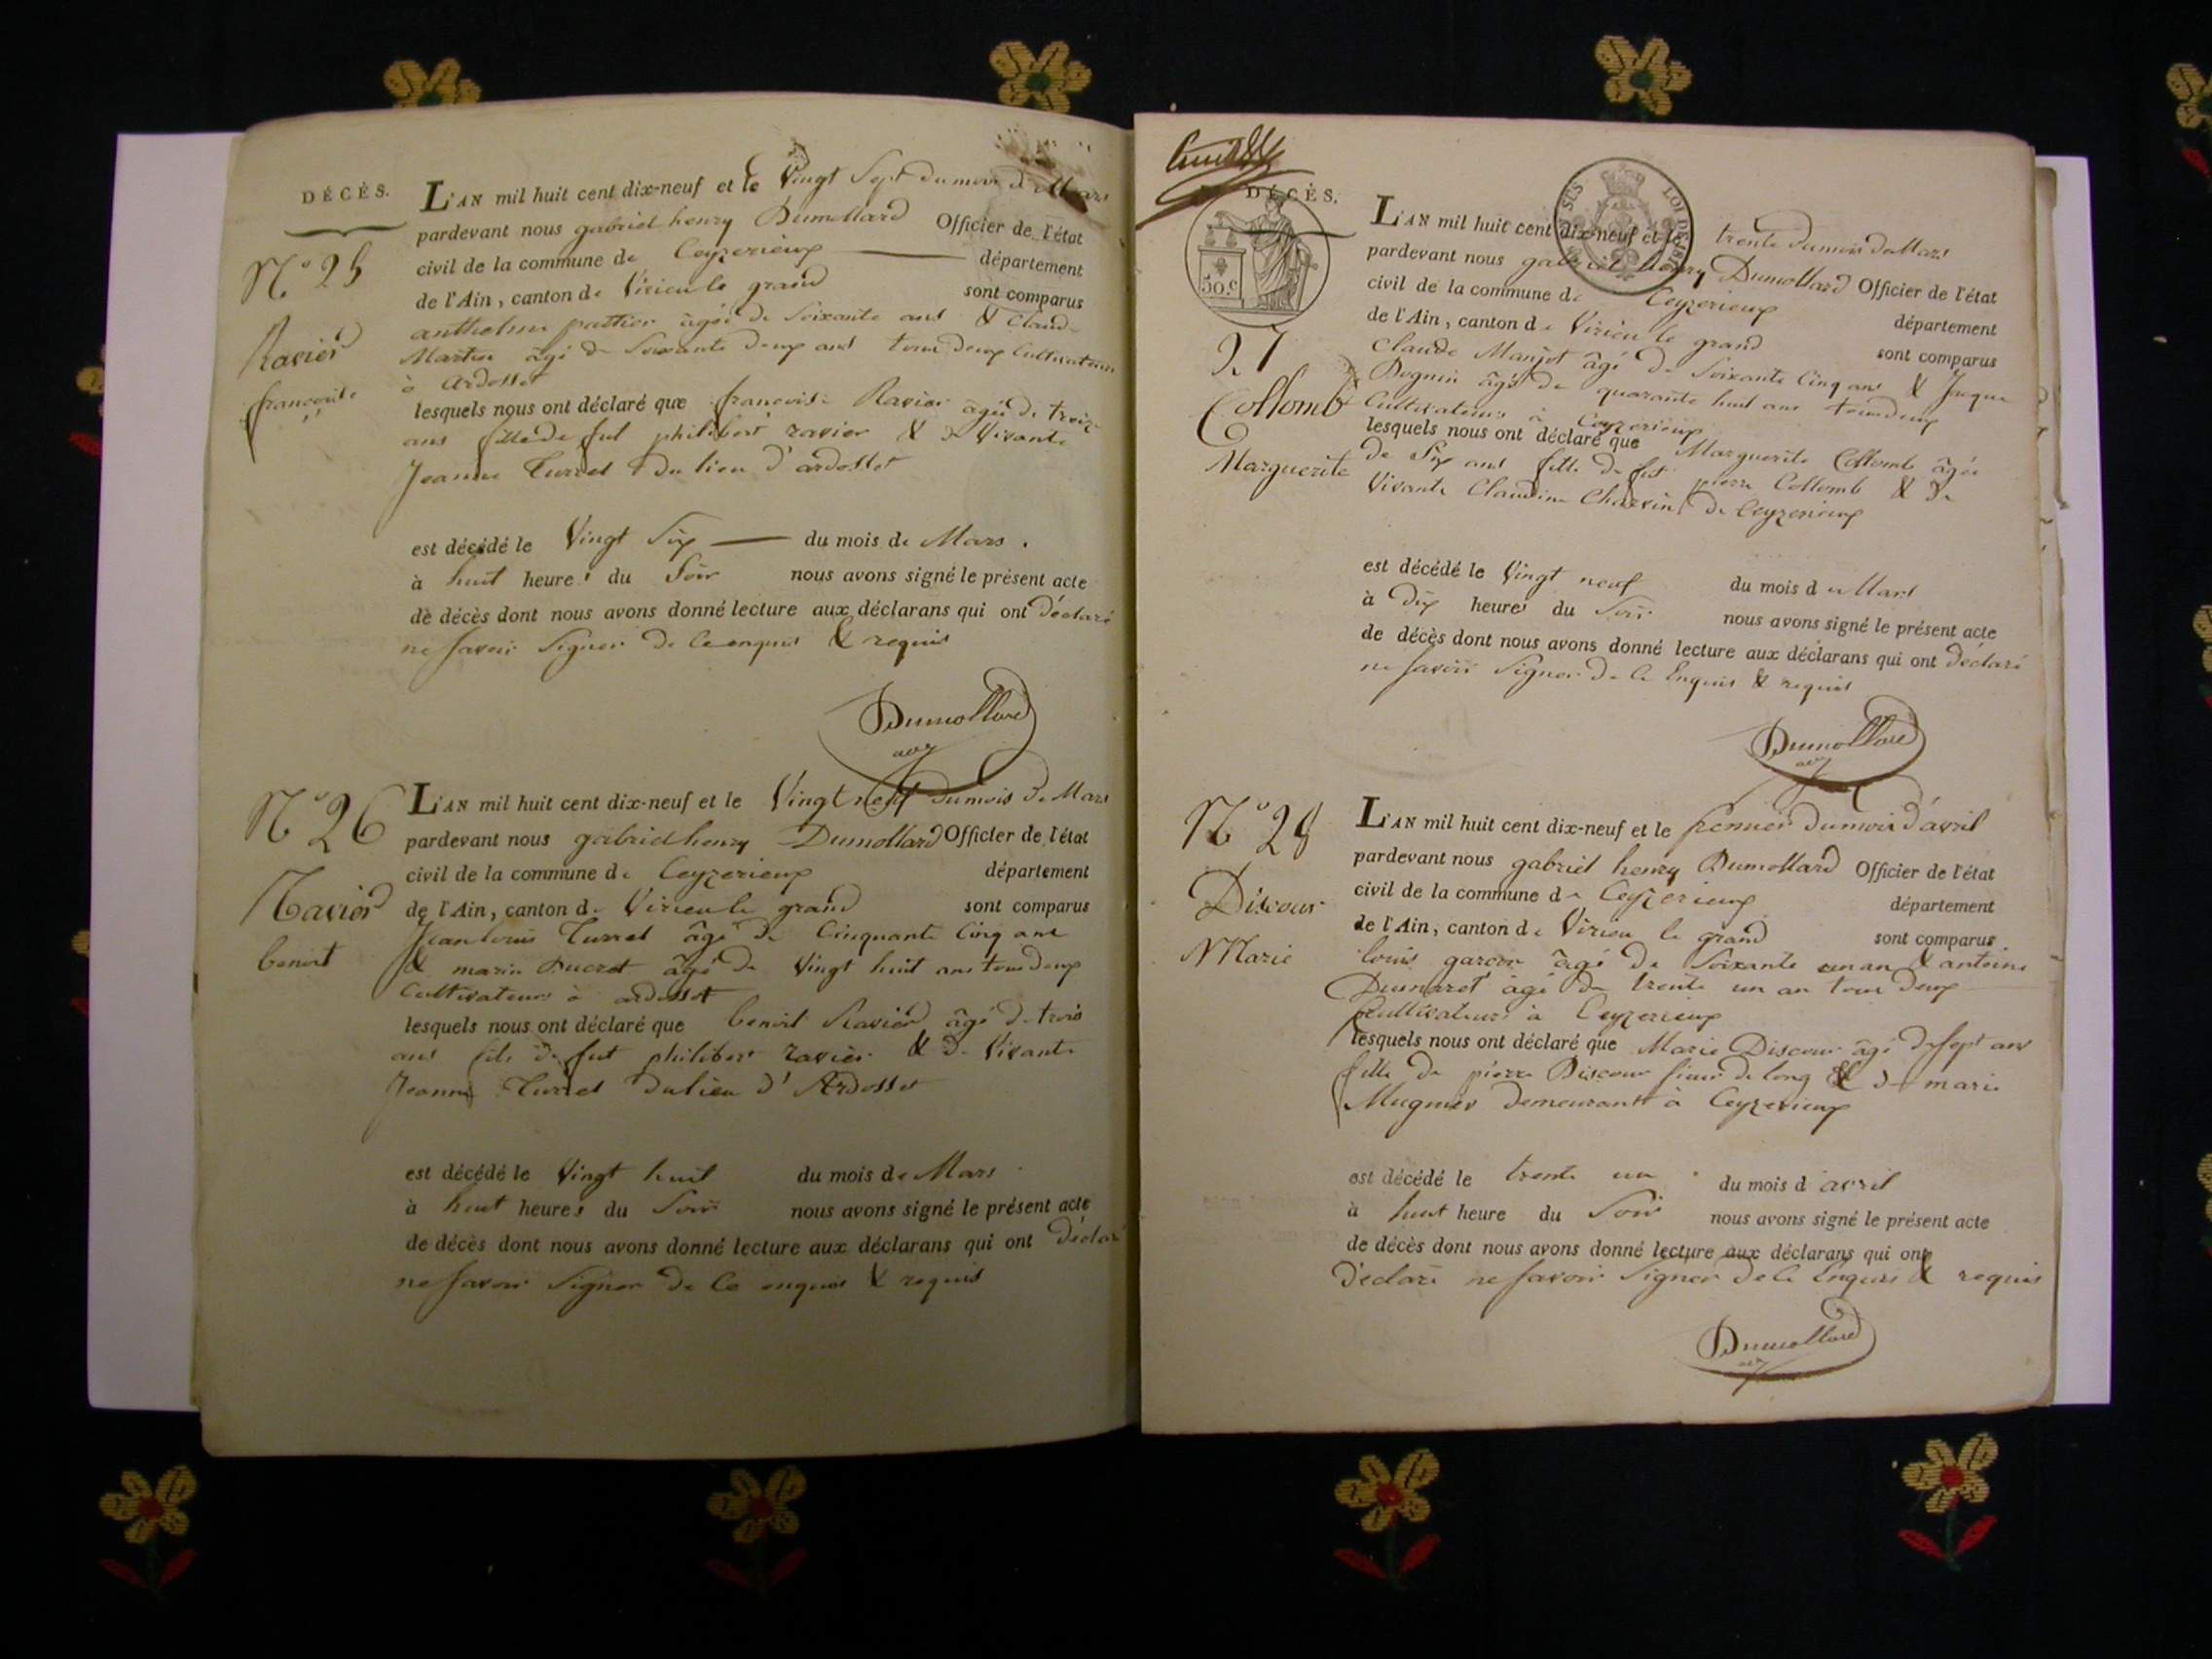 DÉCÈS.
N° 25
Ravier
francoise
L'AN mil huit cent dix-neuf et le Vingt Sept du mois de Mars
pardevant nous gabriel henry Dumollard Officier de l'état
civil de la commune de Ceyzerieux département
de l'Ain, canton de Virieu le grand sont comparus
anthelme pattier âgé de Soixante ans & Claude
Martin âgé de Soixante deux ans tous deux Cultivateurs
à Ardosset
lesquels nous ont déclaré que francoise Ravier âgée de treize
ans fille de fut philibert ravier & de Vivante
Jeanne Turrel du lieu d'ardosset
est décédé le Vingt Six du mois de Mars.
à huit heures du Soir nous avons signé le présent acte
de décès dont nous avons donné lecture aux déclarans qui ont déclaré
ne savoir Signer de ce enquis & requis
Dumollard
N° 26
Ravier
benoit
L'AN mil huit cent dix-neuf et le Vingt neuf du mois de Mars
pardevant nous gabriel henry Dumollard Officier de l'état
civil de la commune de Ceyzerieux département
de l'Ain, canton de Virieu le grand sont comparus
Jean louis Turrel âgé de Cinquante Cinq ans
& marin Ducret âgé de Vingt huit ans tous deux
Cultivateurs à ardosset
lesquels nous ont déclaré que benoit Ravier âgé de trois
ans fils de fut philibert ravier & de Vivante
Jeanne Turrel du lieu d'Ardosset
est décédé le Vingt huit du mois de Mars
à huit heures du Soir nous avons signé le présent acte
de décès dont nous avons donné lecture aux déclarans qui ont déclaré
ne savoir Signer de ce enquis & requis
DÉCÈS.
50.c
LOI DE 1816
27
Collomb
Marguerite
L'AN mil huit cent dix-neuf et le trente du mois de Mars
pardevant nous gabriel henry Dumollard Officier de l'état
civil de la commune de Ceyzerieux département
de l'Ain, canton de Virieu le grand sont comparus
Claude Manjot âgé de Soixante Cinq ans & Jacque
Dognin âgé de quarante huit ans tous deux
Cultivateurs à Ceyzerieux
lesquels nous ont déclaré que Marguerite Collomb âgée
de Six ans fille de fut pierre Collomb & de
Vivante Claudine Charvin de Ceyzerieux
est décédé le Vingt neuf du mois de Mars
à dix heures du Soir nous avons signé le présent acte
de décès dont nous avons donné lecture aux déclarans qui ont déclaré
ne savoir Signer de ce Enquis & requis
Dumollard
N° 28
Discour
Marie
L'AN mil huit cent dix-neuf et le premier du mois d'avril
pardevant nous gabriel henry Dumollard Officier de l'état
civil de la commune de Ceyzerieux département
de l'Ain, canton de Virieu le grand sont comparus
louis garcon âgé de Soixante un an & antoine
Dumaret âgé de trente un an tous deux
Cultivateurs à Ceyzerieux
lesquels nous ont déclaré que Marie Discour âgé de sept ans
fille de pierre Discour sieur de long & de marie
Mugnier demeurant à Ceyzerieux
est décédé le trente un du mois d'avril
à huit heure du Soir nous avons signé le présent acte
de décès dont nous avons donné lecture aux déclarans qui ont
déclaré ne savoir Signer de ce Enquis & requis
Dumollard